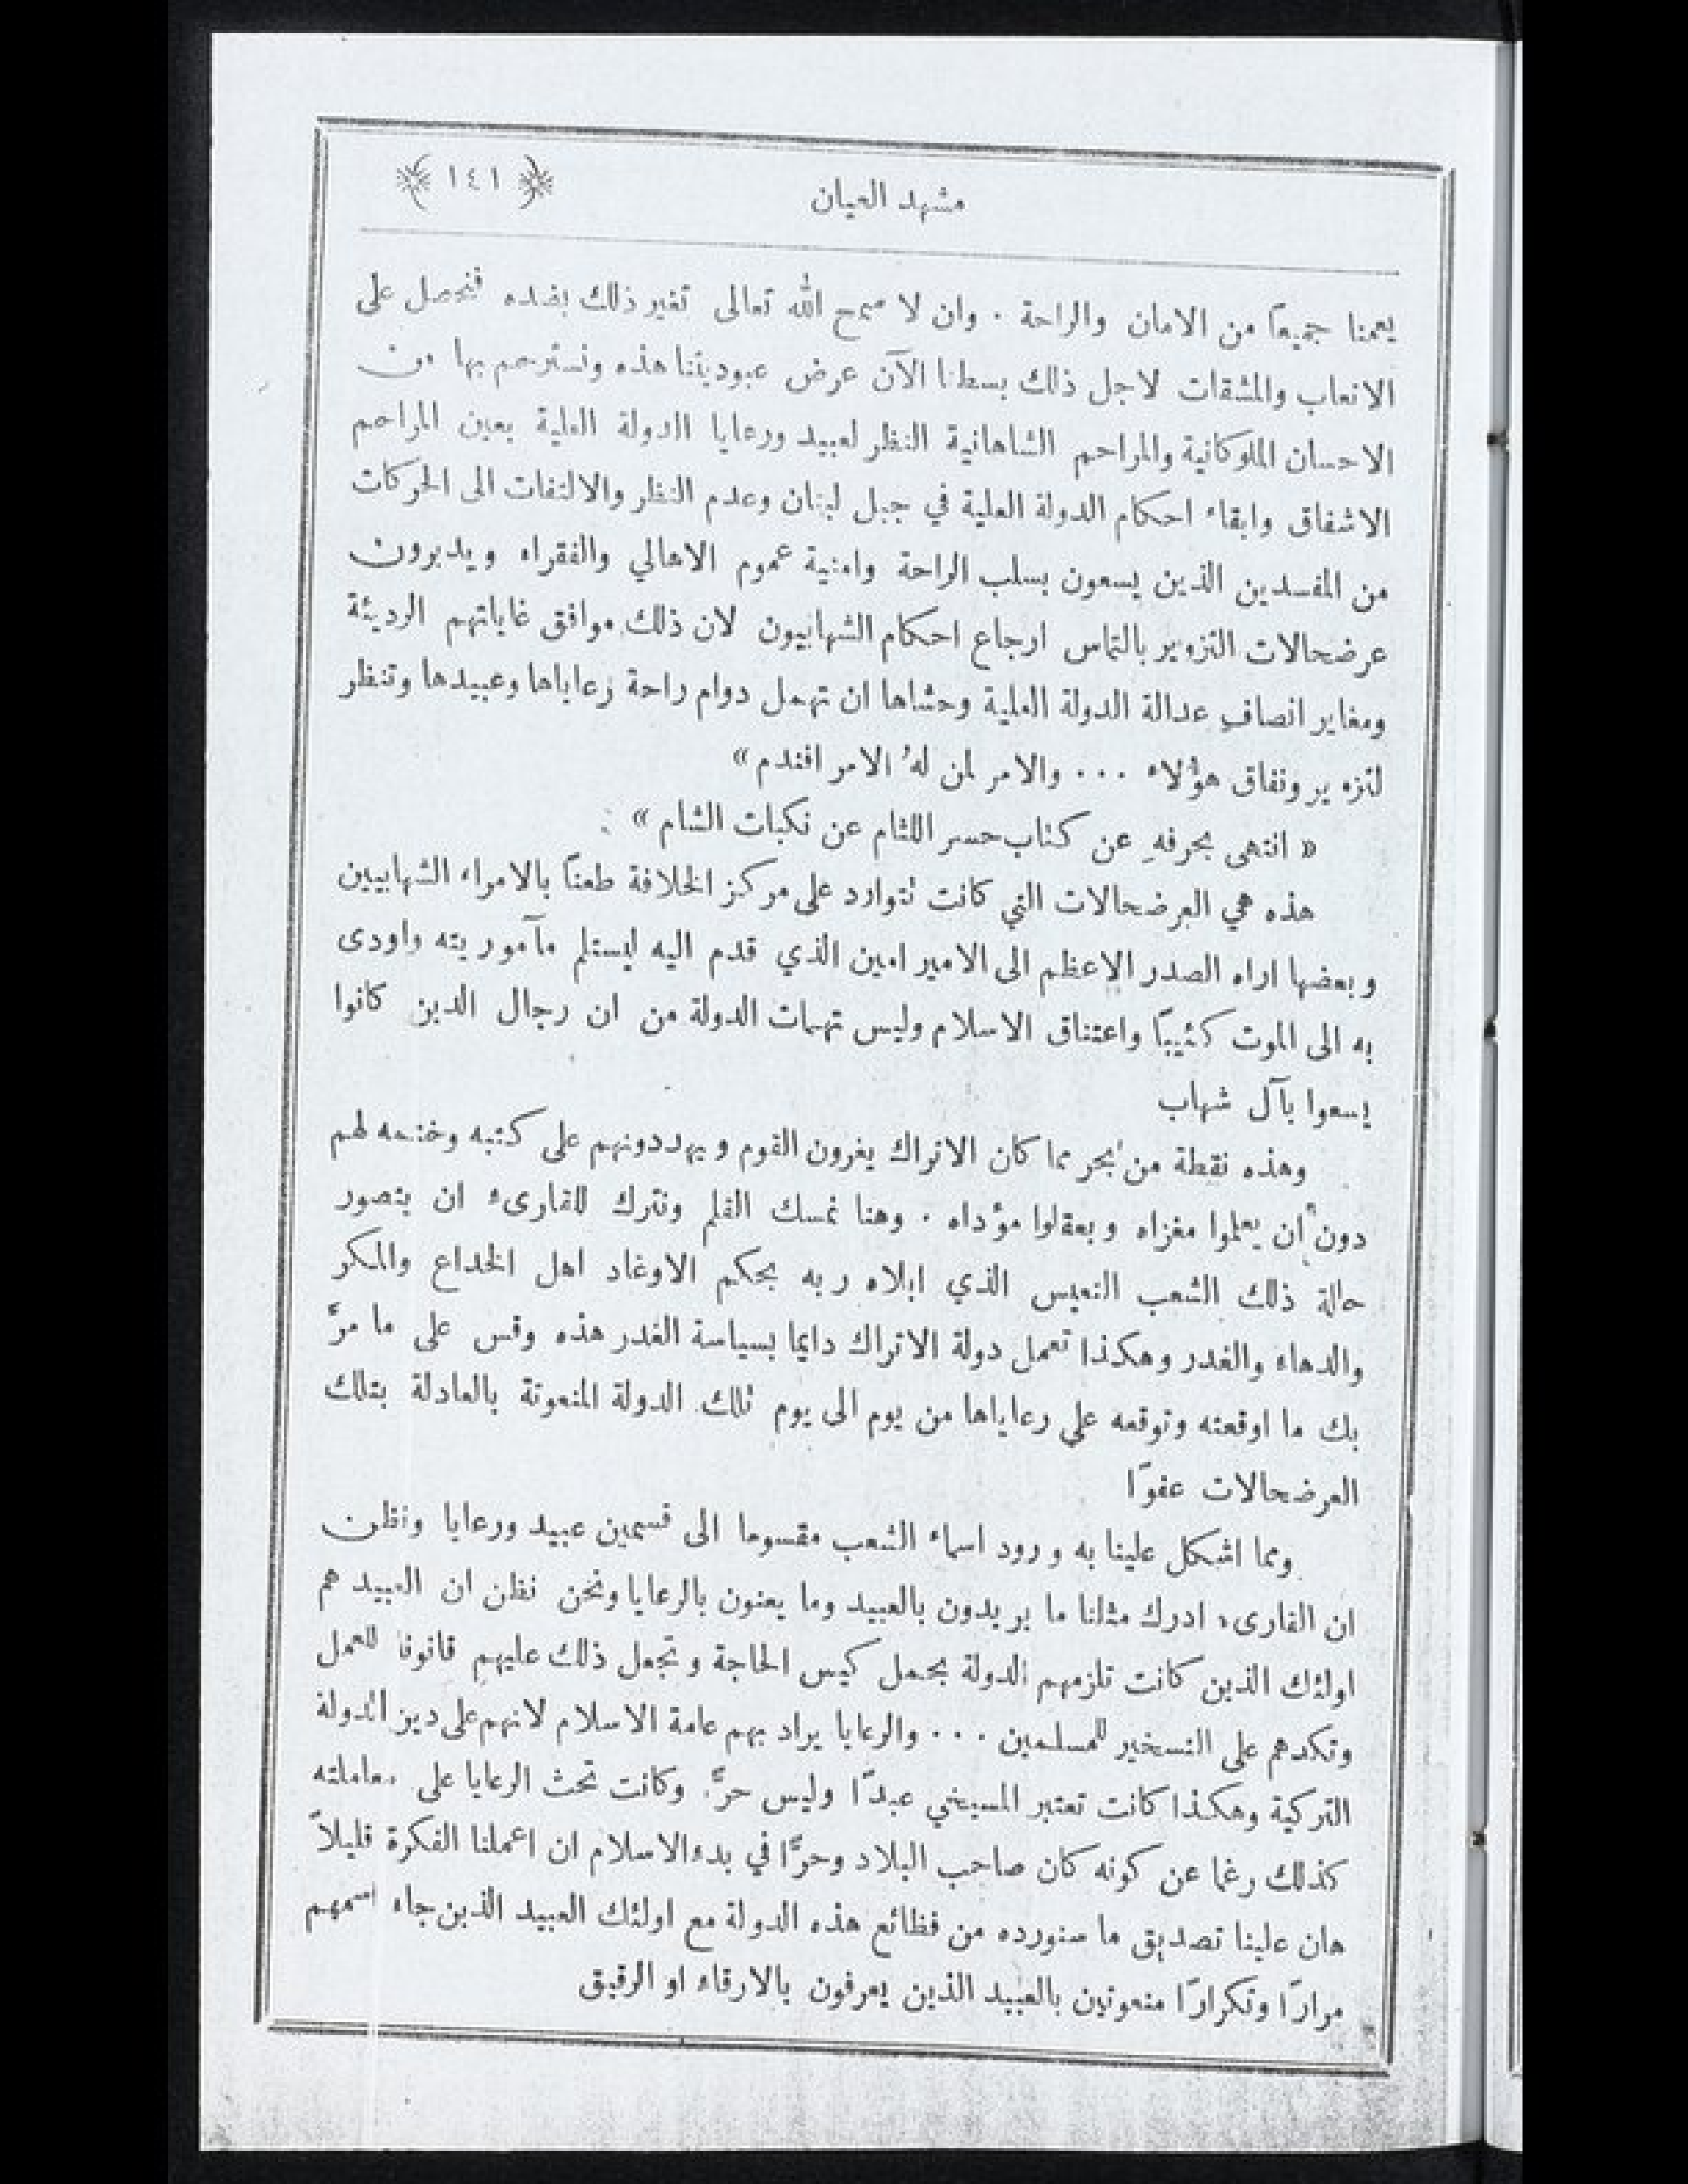 مشهد العيان
﴿ ١٤١ ﴾
يعمنا جميعاً من الامان والراحة . وان لا سمح الله تعالى تغير ذلك بضده فنحصل على
الاتعاب والمشقات لاجل ذلك بسطنا الآن عرض عبوديتنا هذه ونسترحم بها من
الاحسان الملوكانية والمراحم الشاهانية النظر لعبيد ورعايا الدولة العلية بعين المراحم
الاشفاق وابقاء احكام الدولة العلية في جبل لبنان وعدم النظر والالتفات الى الحركات
من المفسدين الذين يسعون بسلب الراحة وامنية عموم الاهالي والفقراء ويدبرون
عرضحالات التزوير بالتماس ارجاع احكام الشهابيون لان ذلك موافق غاياتهم الرديئة
ومغاير انصاف عدالة الدولة العلية وحشاها ان تهمل دوام راحة رعاياها وعبيدها وتنظر
لتزوير ونفاق هؤلاء ... والامر لمن له الامر افندم »
« انتهى بحرفهِ عن كتاب حسر اللثام عن نكبات الشام » :
هذه هي العرضحالات التي كانت تتوارد على مركز الخلافة طعناً بالامراء الشهابيين
وبعضها اراه الصدر الاعظم الى الامير امين الذي قدم اليه ليستلم مآموريته واودى
به الى الموت كئيباً واعتناق الاسلام وليس تهمات الدولة من ان رجال الدين كانوا
يسعوا بآل شهاب
وهذه نقطة من بحر مما كان الاتراك يغرون القوم ويهددونهم على كتبه وختمه لهم
دون أن يعلموا مغزاه ويعقلوا مؤداه . وهنا نمسك القلم ونترك للقارىء ان يتصور
حالة ذلك الشعب التعيس الذي ابلاه ربه بحكم الاوغاد اهل الخداع والمكر
والدهاء والغدر وهكذا تعمل دولة الاتراك دايما بسياسة الغدر هذه وقس على ما مرَّ
بك ما اوقعته وتوقعه على رعاياها من يوم الى يوم تلك الدولة المنعوتة بالعادلة بتلك
العرضحالات عفوًا
ومما اشكل علينا به ورود اسماء الشعب مقسوما الى قسمين عبيد ورعايا ونظن
ان القارىء ادرك مثلنا ما يريدون بالعبيد وما يعنون بالرعايا ونحن نظن ان العبيد هم
اولئك الذين كانت تلزمهم الدولة بحمل كيس الحاجة وتجعل ذلك عليهم قانونا للعمل
وتكدهم على التسخير للمسلمين ... والرعايا يراد بهم عامة الاسلام لانهم على دين الدولة
التركية وهكذا كانت تعتبر المسيحي عبدًا وليس حرًّا وكانت تحث الرعايا على معاملته
كذلك رغما عن كونه كان صاحب البلاد وحرًّا في بدء الاسلام ان اعملنا الفكرة قليلاً
هان علينا تصديق ما سنورده من فظائع هذه الدولة مع اولئك العبيد الذين جاء اسمهم
مرارًا وتكرارًا منعوتين بالعبيد الذين يعرفون بالارقاء او الرقيق